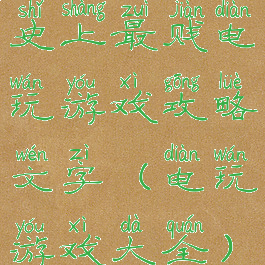 shǐ shàng zuì jiàn diàn
史上最贱电
wán yóu xì gōng lüè
玩游戏攻略
wén zì diàn wán
文字（电玩
yóu xì dà quán
游戏大全）